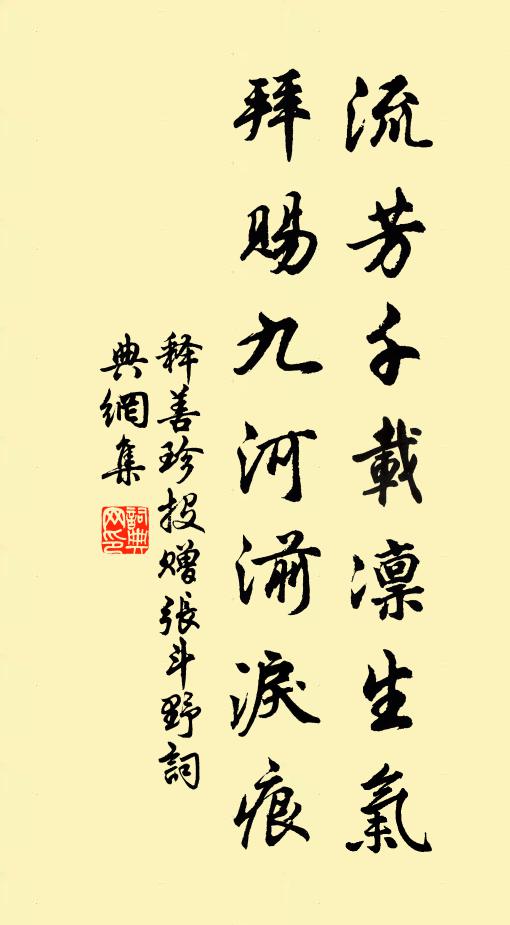 流芳千載凛生氣
拜賜九河湔淚痕
释善珍投赠張斗野詞
典網集
詞典网印